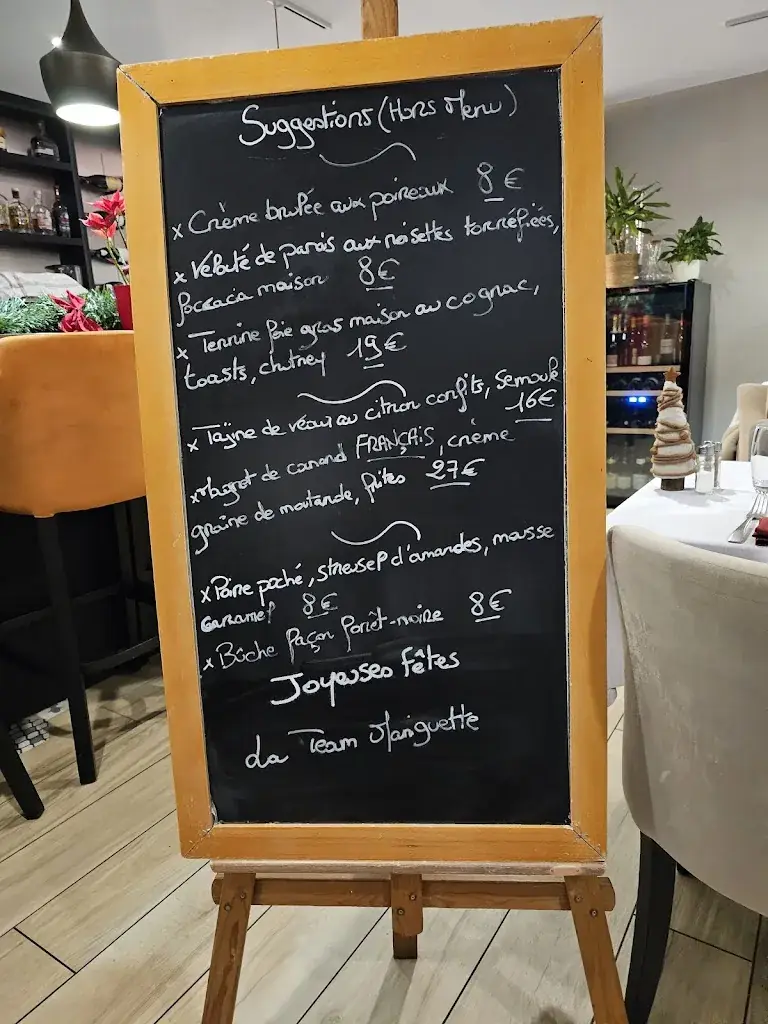 Suggestions (Hors Menu)
x Crème brulée aux poireaux 8€
x Velouté de panais aux noisettes torréfiées,
focaccia maison 8€
x Terrine foie gras maison au cognac,
toasts, chutney 19€
x Tajine de veau au citron confits, Semoule
16€
x Magret de canard FRANÇAIS, crème
graine de moutarde, frites 27€
x Poire poché, streusel d'amandes, mousse
caramel 8€
x Bûche façon forêt-noire 8€
Joyeuses fêtes
La Team Maniguette